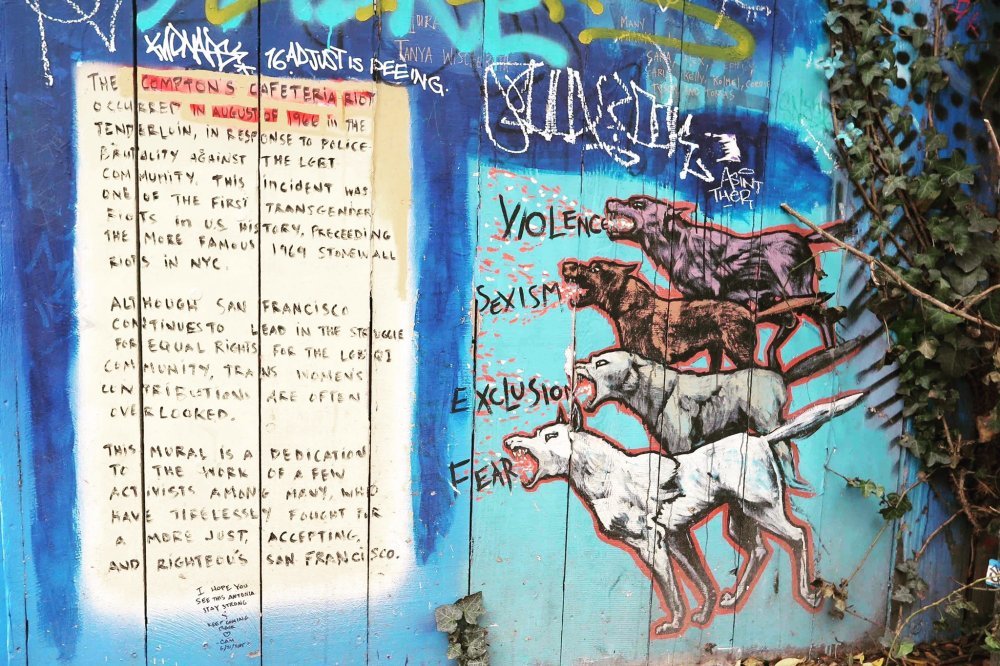 76 ADJUST IS PEEING.
THE COMPTON'S CAFETERIA RIOT
OCCURRED IN AUGUST OF 1966 IN THE
TENDERLOIN, IN RESPONSE TO POLICE
BRUTALITY AGAINST THE LGBT
COMMUNITY. THIS INCIDENT WAS
ONE OF THE FIRST TRANSGENDER
RIOTS IN U.S HISTORY, PRECEEDING
THE MORE FAMOUS 1969 STONEWALL
RIOTS IN NYC.
ALTHOUGH SAN FRANCISCO
CONTINUES TO LEAD IN THE STRUGGLE
FOR EQUAL RIGHTS FOR THE LGBTQI
COMMUNITY, TRANS WOMEN'S
CONTRIBUTIONS ARE OFTEN
OVERLOOKED.
THIS MURAL IS A DEDICATION
TO THE WORK OF A FEW
ACTIVISTS AMONG MANY, WHO
HAVE TIRELESSLY FOUGHT FOR
A MORE JUST, ACCEPTING,
AND RIGHTEOUS SAN FRANCISCO.
I HOPE YOU
SEE THIS ANTONIA
STAY STRONG
TANYA
MANY
VIOLENCE
SEXISM
EXCLUSION
FEAR